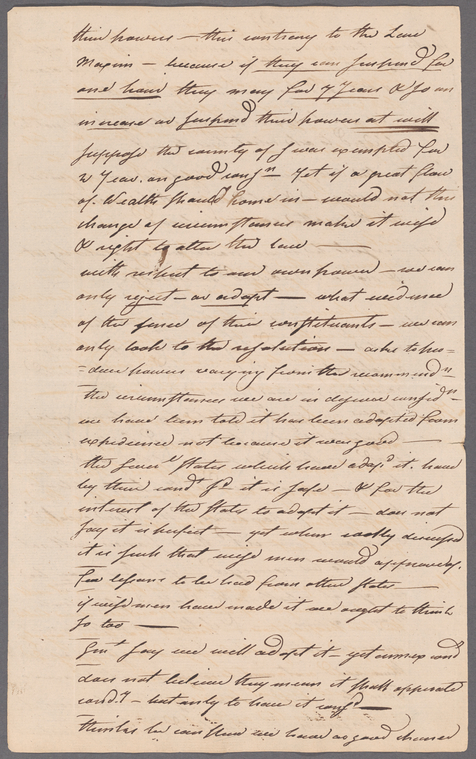 their powers — this contrary to the Law
Maxim — because if they can suspend for
one hour they may for 7 Years & so on
increase or suspend their powers at will
suppose the county of J was exempted for
2 Year. on good consn — Yet if a great flow
of Wealth should come in — would not this
change of circumstances make it wise
& right to alter the Law —
with respect to our own power — we can
only reject — or adopt — what evidence
of the sense of their constituents — we can
only look to the resolution —
=duce powers varying from the recommendn
the circumstances we are in deserve considn —
we have been told it has been adopted from
expedience not because it was good —
the Sevl States which have adopd it. have
by their condt sd it is safe — & for the
interest of the States to adopt it — does not
say it is perfect — yet when coolly discussed
it is such that wise men would approve of.
few lessons to be had from other States —
if wise men have made it we ought to think
so too —
Gent say we will adopt it — yet
does not believe they mean it shall opperate
condl — but only to have it
thinks he can shew we have as good chance